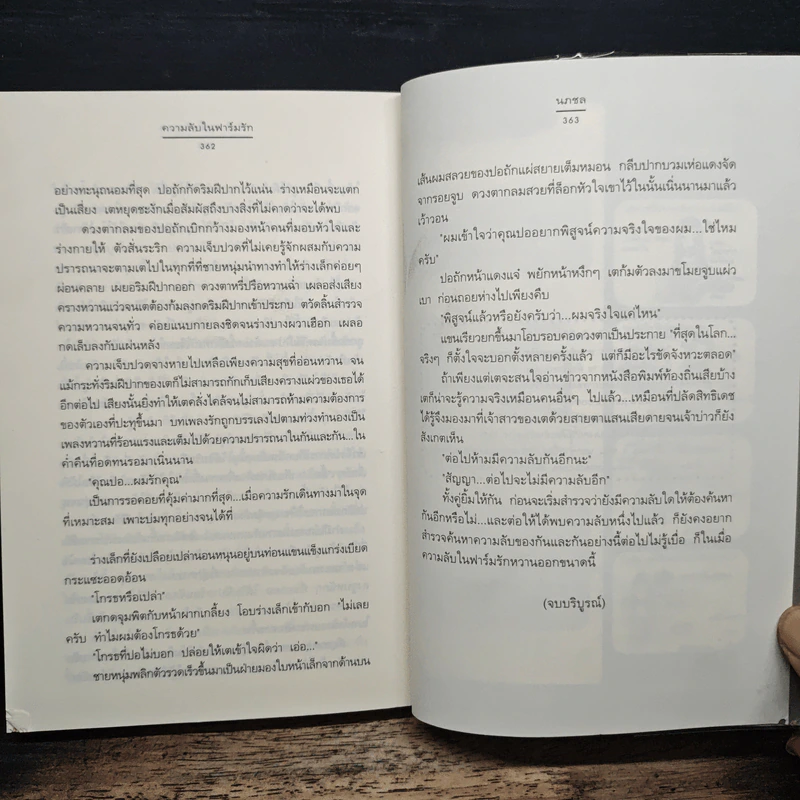 ความลับในฟาร์มรัก
362
อย่างทะนุถนอมที่สุด ปอถักกัดริมฝีปากไว้แน่น ร่างเหมือนจะแตก
เป็นเสี่ยง เตหยุดชะงักเมื่อสัมผัสถึงบางสิ่งที่ไม่คาดว่าจะได้พบ
ดวงตากลมของปอถักเบิกกว้างมองหน้าคนที่มอบหัวใจและ
ร่างกายให้ ตัวสั่นระริก ความเจ็บปวดที่ไม่เคยรู้จักผสมกับความ
ปรารถนาจะตามเตไปในทุกที่ที่ชายหนุ่มนำทางทำให้ร่างเล็กค่อยๆ
ผ่อนคลาย เผยอริมฝีปากออก ดวงตาหรี่ปรือหวานฉ่ำ เผลอส่งเสียง
ครางหวานแว่วจนเตต้องก้มลงกดริมฝีปากเข้าประกบ ตวัดลิ้นสำรวจ
ความหวานจนทั่ว ค่อยแนบกายลงชิดจนร่างบางผวาเฮือก เผลอ
กดเล็บลงกับแผ่นหลัง
ความเจ็บปวดจางหายไปเหลือเพียงความสุขที่อ่อนหวาน จน
แม้กระทั่งริมฝีปากของเตก็ไม่สามารถกักเก็บเสียงครางแผ่วของเธอได้
อีกต่อไป เสียงนั้นยิ่งทำให้เตคลั่งไคล้จนไม่สามารถห้ามความต้องการ
ของตัวเองที่ปะทุขึ้นมา บทเพลงรักถูกบรรเลงไปตามท่วงทำนองเป็น
เพลงหวานที่ร้อนแรงและเต็มไปด้วยความปรารถนาในกันและกัน...ใน
ค่ำคืนที่อดทนรอมาเนิ่นนาน
"คุณปอ...ผมรักคุณ"
เป็นการรอคอยที่คุ้มค่ามากที่สุด...เมื่อความรักเดินทางมาในจุด
ที่เหมาะสม เพาะบ่มทุกอย่างจนได้ที่
ร่างเล็กที่ยังเปลือยเปล่านอนหนุนอยู่บนท่อนแขนแข็งแกร่งเบียด
กระแซะออดอ้อน
"โกรธหรือเปล่า"
เตกดจุมพิตกับหน้าผากเกลี้ยง โอบร่างเล็กเข้ากับอก "ไม่เลย
ครับ ทำไมผมต้องโกรธด้วย"
"โกรธที่ปอไม่บอก ปล่อยให้เตเข้าใจผิดว่า เอ่อ..."
ชายหนุ่มพลิกตัวรวดเร็วขึ้นมาเป็นฝ่ายมองใบหน้าเล็กจากด้านบน
นภชล
363
เส้นผมสลวยของปอถักแผ่สยายเต็มหมอน กลีบปากบวมเห่อแดงจัด
จากรอยจูบ ดวงตากลมสวยที่ล็อกหัวใจเขาไว้ในนั้นเนิ่นนานมาแล้ว
เว้าวอน
"ผมเข้าใจว่าคุณปออยากพิสูจน์ความจริงใจของผม...ใช่ไหม
ครับ"
ปอถักหน้าแดงแจ๋ พยักหน้าหงึกๆ เตก้มตัวลงมาขโมยจูบแผ่ว
เบา ก่อนถอยห่างไปเพียงคืบ
"พิสูจน์แล้วหรือยังครับว่า...ผมจริงใจแค่ไหน"
แขนเรียวยกขึ้นมาโอบรอบคอดวงตาเป็นประกาย "ที่สุดในโลก...
จริงๆ ก็ตั้งใจจะบอกตั้งหลายครั้งแล้ว แต่ก็มีอะไรขัดจังหวะตลอด"
ถ้าเพียงแต่เตจะสนใจอ่านข่าวจากหนังสือพิมพ์ท้องถิ่นเสียบ้าง
เตก็น่าจะรู้ความจริงเหมือนคนอื่นๆ ไปแล้ว...เหมือนที่ปลัดสิทธิเดช
ได้รู้จึงมองมาที่เจ้าสาวของเตด้วยสายตาแสนเสียดายจนเจ้าบ่าวก็ยัง
สังเกตเห็น
"ต่อไปห้ามมีความลับกันอีกนะ"
"สัญญา...ต่อไปจะไม่มีความลับอีก"
ทั้งคู่ยิ้มให้กัน ก่อนจะเริ่มสำรวจว่ายังมีความลับใดให้ต้องค้นหา
กันอีกหรือไม่...และต่อให้ได้พบความลับหนึ่งไปแล้ว ก็ยังคงอยาก
สำรวจค้นหาความลับของกันและกันอย่างนี้ต่อไปไม่รู้เบื่อ ก็ในเมื่อ
ความลับในฟาร์มรักหวานออกขนาดนี้
(จบบริบูรณ์)